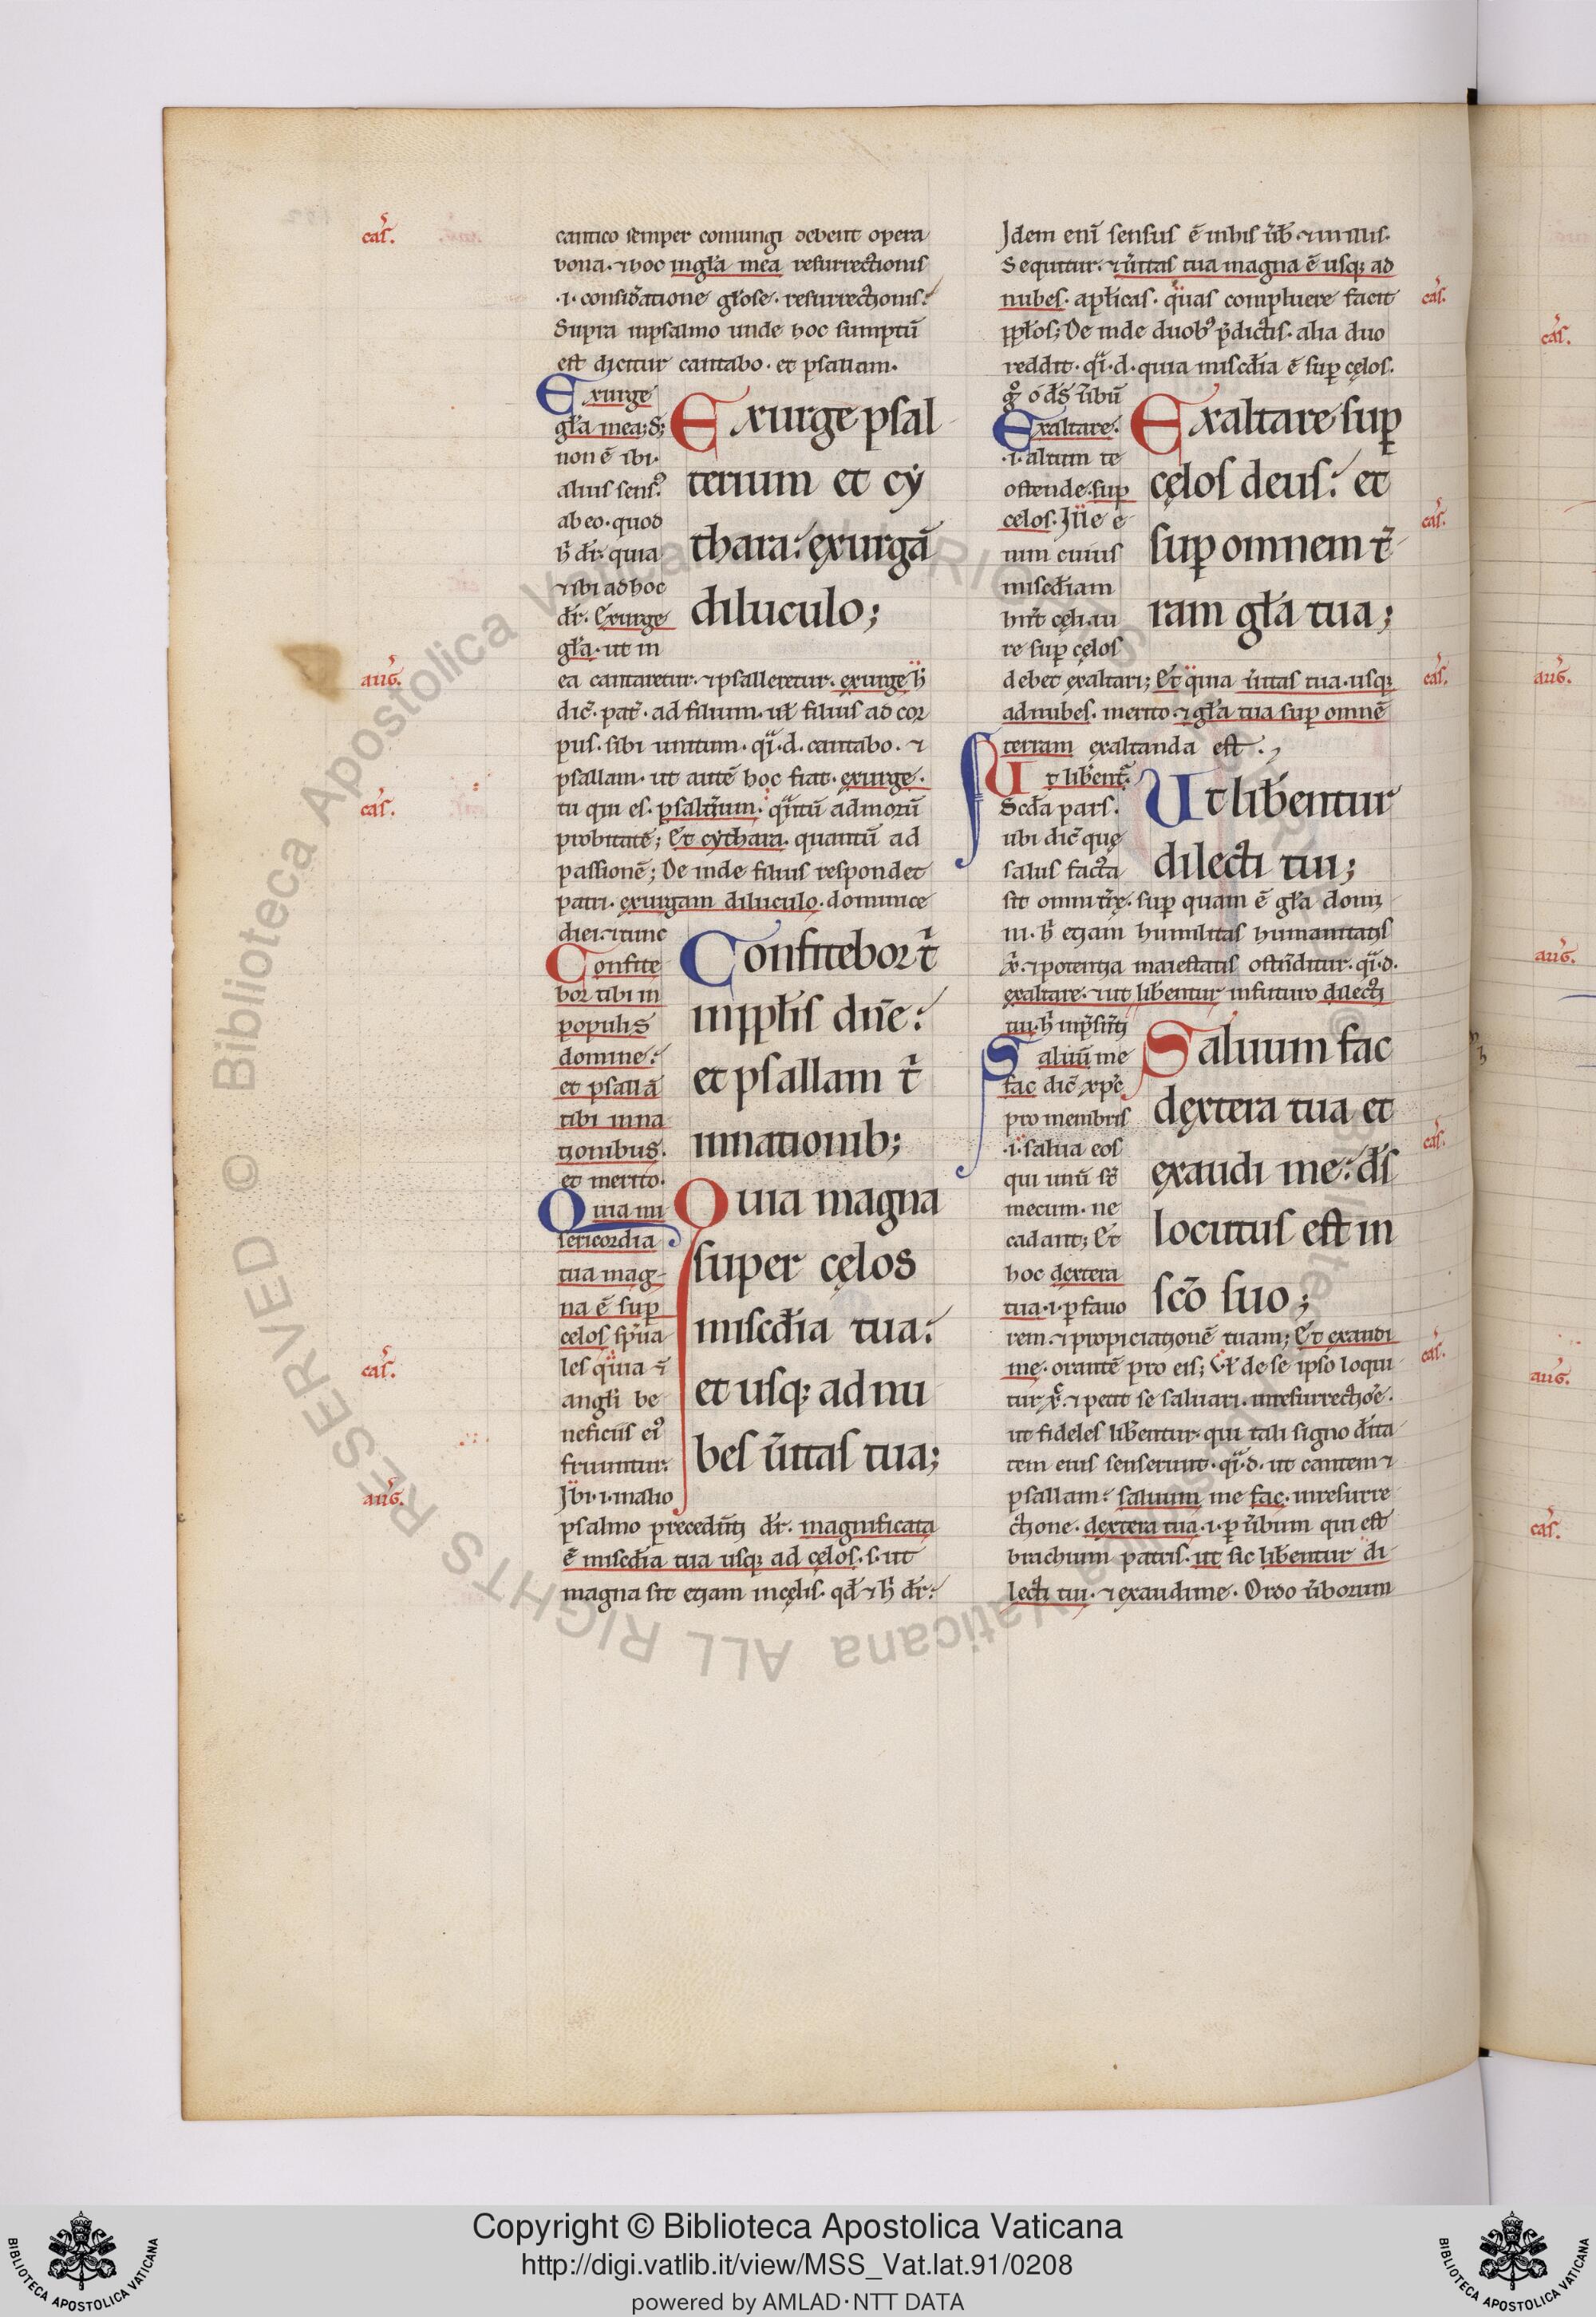 cantico semper coniungi debent opera
bona. ⁊ hoc in gl̄a mea resurrectionis
.i. consid̄atione gl̄ose resurrectionis.
Supra in psalmo unde hoc sumptū
est dicitur cantabo. et psallam.
Exurge
gl̄a mea; s;
non ē ibi.
alius sensꝰ
ab eo. quod
h̄ dr̄. quia
⁊ ibi ad hoc
dr̄. Exurge
gl̄a. ut in
Exurge psal
terium et cẏ
thara: exurgā
diluculo;
ea cantaretur. ⁊ psalleretur. exurge h̄
dic̄. pat̄. ad filium. ul̄ filius ad cor
pus. sibi unitum. q̄i.d. cantabo. ⁊
psallam. ut autē hoc fiat. exurge.
tu qui es. psalt̄ium. q̄ntū ad morū
probitatē; Et cẏthara. quantū ad
passionē; De inde filius respondet
patri. exurgam diluculo. dominice
diei. ⁊ tunc
Confite
bor tibi in
populis
domine:
et psallā
tibi in na
tionibus.
et merito.
Confitebor t̄
in pp̄lis dn̄e:
et psallam t̄
in nationib;
Quia mi
sericordia
tua mag-
na ē sup̄
celos sp̄ua
les quia ⁊
angl̄i be
neficiis eiꝰ
fruuntur.
Ibi .i. in alio
Quia magna
super cęlos
misc̄dia tua:
et usq; ad nu
bes ūitas tua;
psalmo precedēti dr̄. magnificata
ē misc̄dia tua usq; ad cęlos. s. ut
magna sit etiam in cęlis. qd̄ ⁊ h̄ dr̄:
Idem enī sensus ē in his ūb̄ ⁊ in illis.
Sequitur. ⁊ ūitas tua magna ē usq; ad
nubes. ap̄licas. quas compluere facit
pp̄los; De inde duobꝰ p̄dictis. alia duo
reddit. q̄i.d. quia misc̄dia ē sup̄ cęlos.
g̊ o ds̄ ūbū
Exaltare.
.i. altum te
ostende. sup̄
celos. Ille e
nim cuius
misc̄diam
celi. iu
re sup̄ cęlos
Exaltare sup̄
cęlos deus: et
sup̄ omnem t̄
ram gl̄a tua;
debet exaltari; Et quia ūitas tua. usq;
ad nubes. merito. ⁊ gl̄a tua sup̄ omnē
terram exaltanda est.
Ut lib̄ent̄
Scd̄a pars.
ubi dic̄ que
salus facta
Ut lib̄entur
dilecti tui;
sit omni t̄rę. sup̄ quam ē gl̄a domi
ni. h̄ etiam humilitas humanitatis
x̄. ⁊ potentia maiestatis ostn̄ditur. q̄i.d.
exaltare. ⁊ ut lib̄entur in futuro dilecti
tui. h̄ in p̄sn̄ti
Saluū me
fac dic̄ xp̄c
pro membris
.i. salua eos
qui unū st̄
mecum. ne
cadant; Et
hoc dextera
tua .i. p̄ fauo
Saluum fac
dextera tua et
exaudi me: ds̄
locutus est in
sc̄o suo;
rem. ⁊ propiciationē tuam; Et exaudi
me. orantē pro eis; Ul̄ de se ipso loqui
tur x̄. ⁊ petit se saluari. in resurrectiōe.
ut fideles lib̄entur. qui tali signo
eius senserunt. q̄i.d. ut cantem ⁊
psallam: saluum me fac. in resurre
ctione. dextera tua. .i. p̄ ūbum qui est
brachium patris. ut sic lib̄entur di
lecti tui. ⁊ exaudi me. Ordo ūborum
cas̄.
auḡ.
cas̄.
cas̄.
auḡ.
cas̄.
cas̄.
cas̄.
cas̄.
cas̄.
cas̄.
auḡ.
auḡ.
auḡ.
cas̄.
© Biblioteca Apostolica Vaticana ALL RIGHTS RESERVED
Copyright © Biblioteca Apostolica Vaticana
http://digi.vatlib.it/view/MSS_Vat.lat.91/0208
powered by AMLAD·NTT DATA
BIBLIOTECA APOSTOLICA VATICANA
BIBLIOTECA APOSTOLICA VATICANA